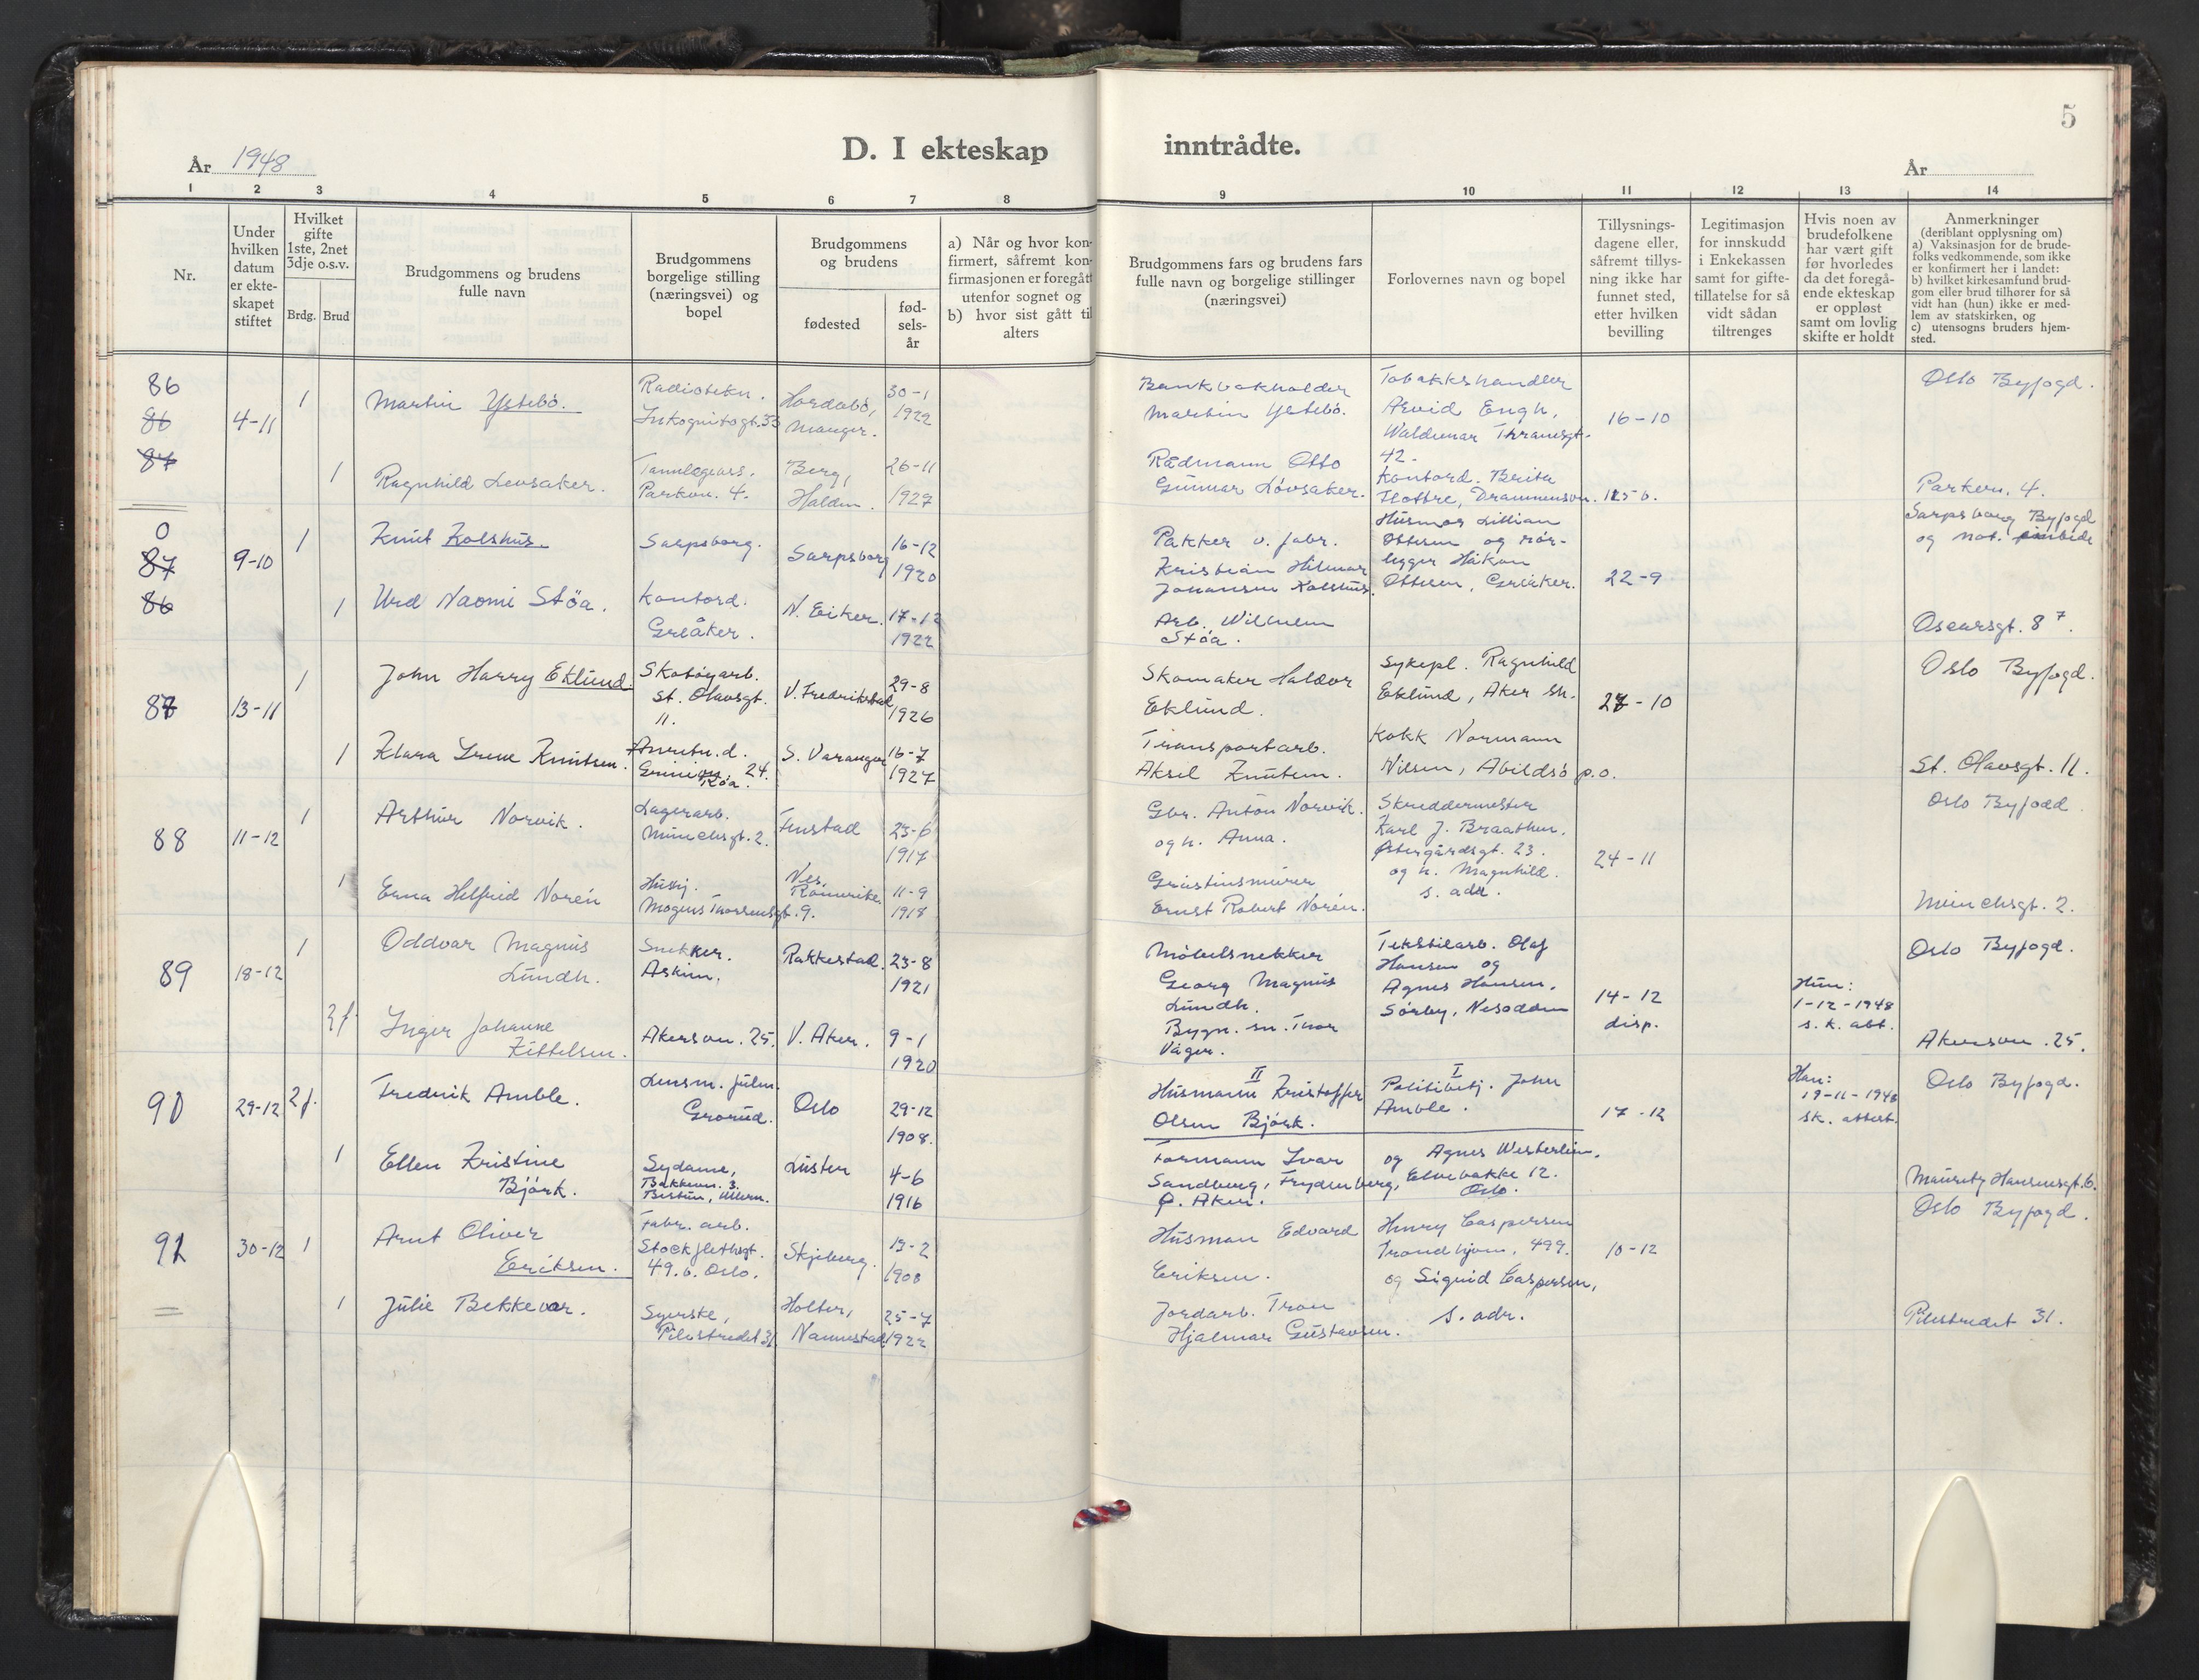 5
D. I ekteskap inntrådte.
År 1948
År
1 2 3 4 5 6 7 8 9 10 11 12 13 14
Nr.
Under hvilken datum er ekte-skapet stiftet
Hvilket gifte 1ste, 2net 3dje o.s.v.
Brdg. Brud
Brudgommens og brudens fulle navn
Brudgommens borgelige stilling (næringsvei) og bopel
Brudgommens og brudens
fødested
fød-sels-år
a) Når og hvor kon-
firmert, såfremt kon-
firmasjonen er foregått
utenfor sognet og
b) hvor sist gått til
alters
Brudgommens fars og brudens fars
fulle navn og borgelige stillinger
(næringsvei)
Forlovernes navn og bopel
Tillysnings-
dagene eller,
såfremt tillys-
ning ikke har
funnet sted,
etter hvilken
bevilling
Legitimasjon
for innskudd
i Enkekassen
samt for gifte-
tillatelse for så
vidt sådan
tiltrenges
Hvis noen av
brudefolkene
har vært gift
før hvorledes
da det foregå-
ende ekteskap
er oppløst
samt om lovlig
skifte er holdt
Anmerkninger
(deriblant opplysning om)
a) Vaksinasjon for de brude-
folks vedkommende, som ikke
er konfirmert her i landet:
b) hvilket kirkesamfund brud-
gom eller brud tilhører for så
vidt han (hun) ikke er med-
lem av statskirken, og
c) utensogns bruders hjem-
sted.
86
86
87
4-11
1
Martin Ystebö.
Radiotekn.
Inkognitogt. 33
Hordabö,
Manger.
30-1
1922
Bankbokholder
Martin Ystebö.
Tobakkshandler
Arvid Engh,
Waldemar Thranesgt.
42.
16-10
Oslo Byfogd.
1
Ragnhild Levsaker.
Tannlegeass.
Parkvn. 4.
Berg,
Halden.
26-11
1927
Rådmann Otto
Gunnar Lövsaker.
Kontord. Brita
Flottre, Drammensvn. 115 b.
Parkvn. 4.
0
87
86
9-10
1
Knut Kolshus.
Sarpsborg.
Sarpsborg
16-12
1920
Pakker v. fabr.
Kristian Hilmar
Johansen Kolshus.
Husmor Lillian
Ottesen og rør-
legger Håkon
Ottesen, Greåker.
22-9
Sarpsborg Byfogd
og not. embede
1
Urd Naomi Stöa.
Kontord.
Greåker.
N. Eiker.
17-12
1922
Arb. Wilhelm
Stöa.
Oscarsgt. 8 7.
87
13-11
1
John Harry Eklund
Skotøyarb.
St. Olavsgt.
11.
V. Fredrikstad
29-8
1926
Skomaker Haldor
Eklund.
Sykepl. Ragnhild
Eklund, Aker sh.
27-10
Oslo Byfogd.
1
Klara Irene Knutsen.
Anretn. d.
Grinivn. 24.
Röa.
S. Varanger
16-7
1927
Transportarb.
Aksel Knutsen.
Kokk Normann
Nilsen, Abildsö p.o.
St. Olavsgt. 11.
88
11-12
1
Arthur Norvik.
Lagerarb.
Munchsgt. 2.
Finstad
23-6
1917
Gbr. Anton Norvik.
og h. Anna.
Skreddermester
Karl J. Braathen.
Østergårdsgt. 23.
og h. Magnhild.
s. adr.
24-11
Oslo Byfodd
1
Erna Helfrid Norén
Hushj.
Mogens Thorsensgt. 9.
Nes,
Romerike.
11-9
1918
Grustinsmurer
Ernst Robert Norén.
Munchsgt. 2.
89
18-12
1
Oddvar Magnus
Lundh.
Snekker.
Askim.
Rakkestad.
23-8
1921
Möbelsnekker
Georg Magnus
Lundh.
Tekstilarb. Olaf
Hansen og
Agnes Hansen,
Sörby, Nesodden
14-12
disp.
Hun:
1-12-1948
s. k. att.
Oslo Byfogd.
2 f.
Inger Johanne
Kittelsen.
Akersvn. 25.
V. Aker.
9-1
1920
Bygn. sn. Thor
Våger.
Akersvn. 25.
90
29-12
2 f.
Fredrik Amble.
Lensm. fulm.
Grorud.
Oslo
29-12
1908.
II
Husmann Kristoffer
Olsen Björk.
I
Politibetj. John
Amble.
17-12
Han:
19-11-1948
sk. attest.
Oslo Byfogd.
1
Ellen Kristine
Björk.
Sydame,
Bakkevn. 3.
Bestun, Ullern.
Luster
4-6
1916
Formann Ivar
Sandberg, Frydenberg,
Ø. Aker.
og Agnes Westerlin.
Elvebakke 12.
Oslo.
Mauritz Hansensgt. 6.
91
30-12
1
Arnt Oliver
Eriksen.
Fabr. arb.
Stockflethsgt.
49. b. Oslo.
Skjeberg.
13-2
1908
Husman Edvard
Eriksen.
Henry Caspersen
Trondhjem. 499.
og Sigrid Caspersen,
s. adr.
10-12
Oslo Byfogd.
1
Julie Bekkevar.
Syerske,
Pilestredet 31
Holter,
Nannestad
25-7
1922
Jordarb. Tron
Hjalmar Gustavsen.
Pilestredet 31.